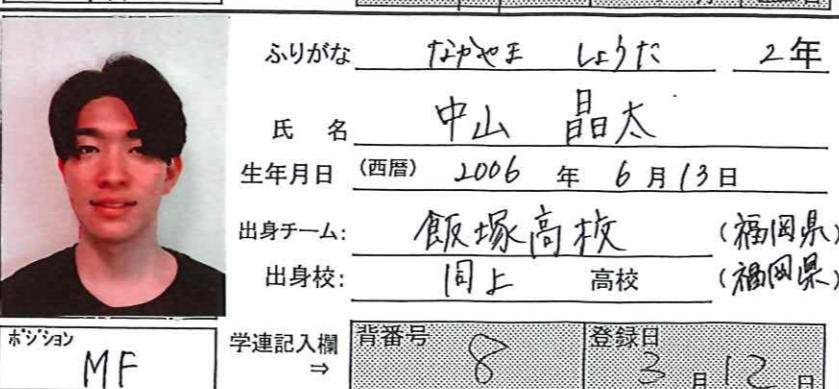 ふりがな なかやま しょうた 2年
氏 名 中山 晶太
生年月日 (西暦) 2006 年 6 月 13 日
出身チーム: 飯塚高校 (福岡県)
出身校: 同上 高校 (福岡県)
ポジション 学連記入欄 背番号 登録日
MF ⇒ 8 3 月 12 日